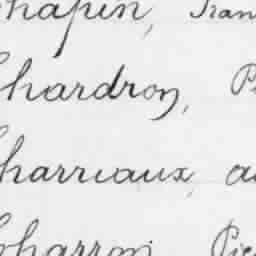 Chapin, Fran
Chardron, P
Charriaux, a
Charron, Pie